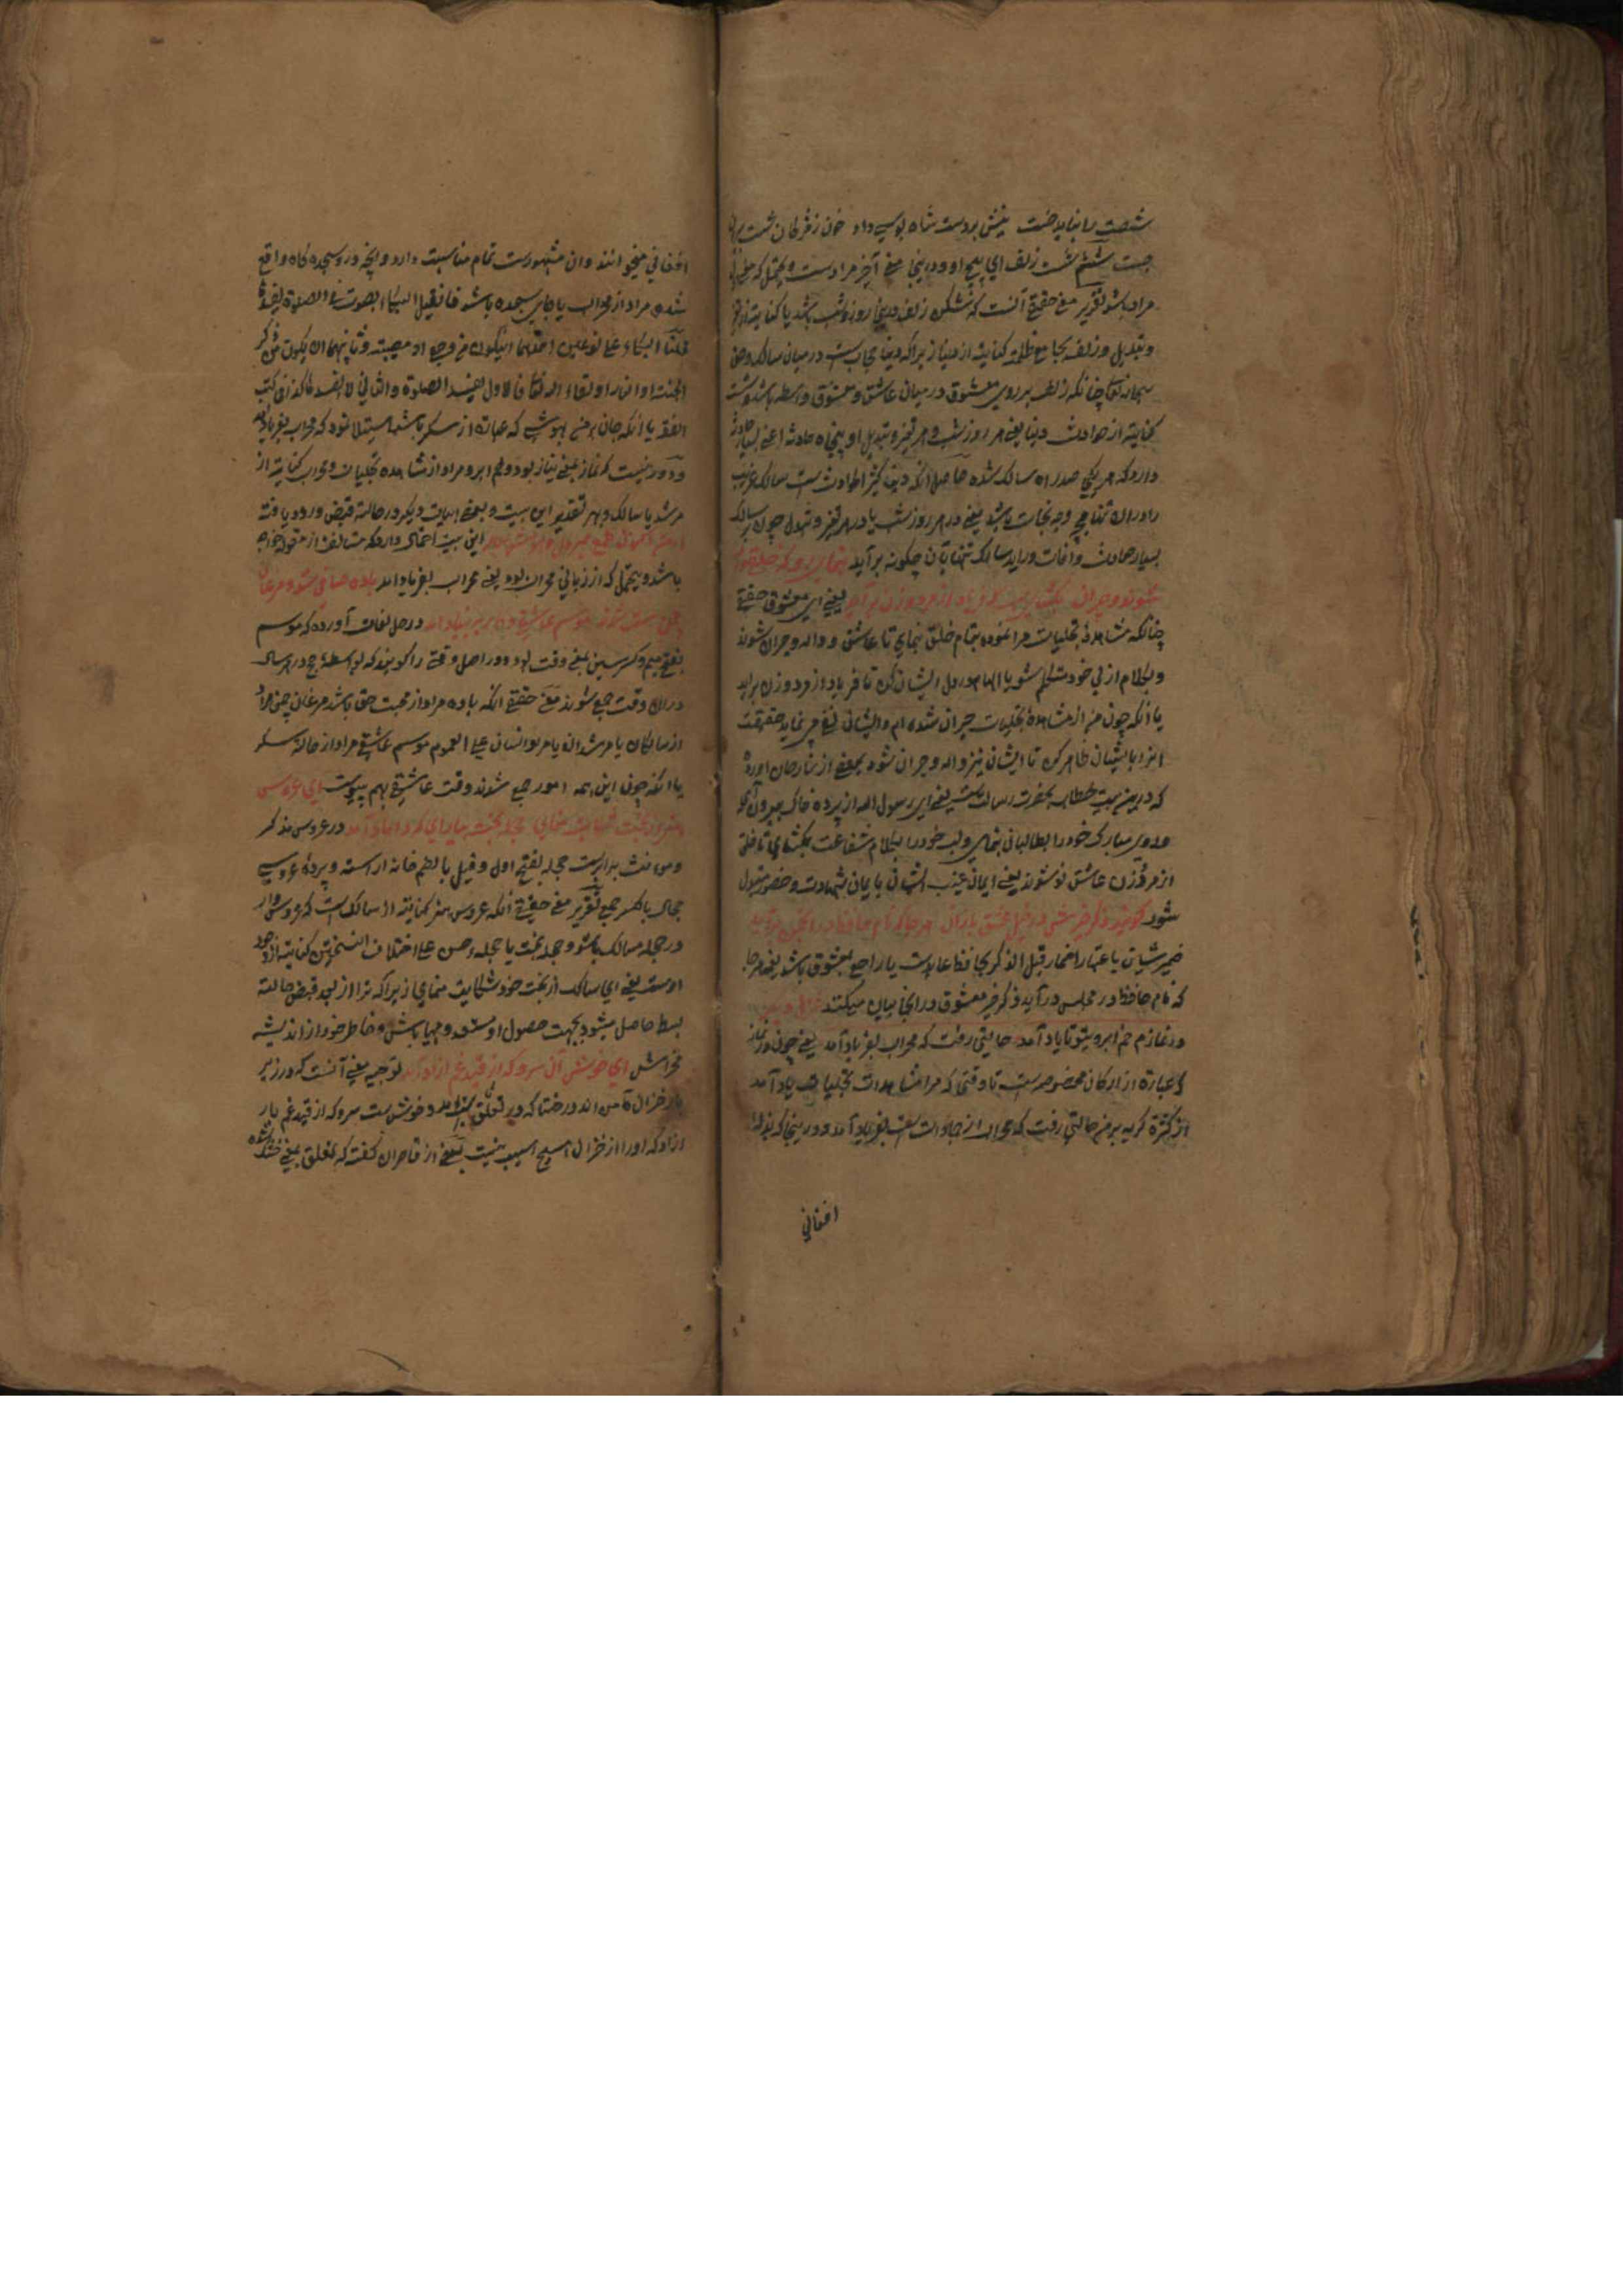 شصت را نباید خست تیرش بر دست شاه بوسه داد خون ز
جست ششم شست زلف ای پیچ او و درینجا معنی آخر مرادست و محتمل که معنی
مراد باشد تقریر معنی حقیقة آنست که شکن زلف درینجا روز و شب باشد یا کنایت از
و تبدیل و زلف بجامع ظلمة کنایت از دنیا زیراکه دنیا حجاب ست در میان سالک و حق
سبحانه تعالی چنانکه زلف بر روی معشوق در میان عاشق و معشوق واسطه باشد و شست
کنایت از حوادث دنیا یعنی هر روز و شب و هر تغیر و تبدیل او پنجاه حادثه اعنی بسیار حادثه
دارد که هر یکی صدر راه سالک شده حاصل آنکه دنیا کثیر الحوادث ست سالک غریب
را دران تنها چه وجه نجات باشد یعنی در هر روز و شب یا در هر تغیر و تبدل چون بر سالک
بسیار حادث و آفات در آید سالک تنها بآن چگونه برآید بنمای رو که خلقی واله
شوند و حیران بگشای لب که فریاد از مرد و زن برآید یعنی ای معشوق حقیقی
چنانکه مشاهدۀ تجلیات مرا نموده بتمام خلق بنمای تا عاشق و واله و حیران شوند
و بکلام ازلی خود متکلم شو یا الهام در دل ایشان کن تا فریاد از مرد و زن برآید
یا آنکه چون من از مشاهدۀ تجلیات حیران شده ام و ایشان نیز حقیقت
آنرا بایشان ظاهر کن تا ایشان نیز واله و حیران شوند بعضی از شارحان آورده
که درین بیت خطاب بحضرت رسالت ست یعنی ای رسول الله از پرده خاک بیرون آی
و روی مبارک خود را بطالبان بنمای و لب خود را بکلام شفاعت بگشای تا خلق
از مرد و زن عاشق تو شوند یعنی ایمان غیب ایشان بایمان شهادت و حضور متبدل
شود گویند ذکر خیرش در خیل عشق بازان هر جا که نام حافظ در انجمن برآید
ضمیر شین باعتبار اضمار قبل الذکر بحافظ عایدست یا راجع بمعشوق باشد یعنی هر جا
که نام حافظ در مجلس درآید ذکر خیر معشوق در آنجا بیان میکنند
در نمازم خم ابروی تو تا یاد آمد حالتی رفت که محراب بفریاد آمد یعنی چون در نماز
که عبارة از ارکان مخصوصه ست تا وقتی که مرا مشاهدات تجلیات یاد آمد
از کثرة گریه بر من حالتی رفت که محراب از جمادات ست بفریاد آمد و درینجا که
افغانی
افغانی میخوانند و آن مشهورست تمام مناسبت دارد و آنچه در سجده گاه واقع
شده مراد از محراب یا جای سجده باشد فان قیل البکاء بصوت فی الصلوة یفسدها
قلنا البکاء علی نوعین احدهما ان یکون من وجع او مصیبة و ثانیهما ان یکون من ذکر
الجنة او النار او لقاء الله تعالی فالاول یفسد الصلوة والثانی لا یفسد هکذا فی کتب
الفقه یا آنکه جان من بیهوشی که عبارة از سکر باشد استیلا نمود که محراب بفریاد آمد
و دور نیست که نماز بمعنی نیاز بود و خم ابرو مراد از مشاهده تجلیات و محراب کنایت از
مرشد یا سالک و بهر تقدیر این بیت و بعضی ابیات دیگر در حالت قبض ورود یافته
این بیت احتمال دارد که
باشد و یحتمل که از زبانی محراب بود یعنی محراب بفریاد آمد باده صافی شد و مرغان
چمن مست شدند موسم عاشقی و کار ببنیاد آمد در حل لغات آورده که موسم
بفتح میم و کسر سین بمعنی وقت بود و در اصل وقتی را گویند که بواسطۀ حج در هر سال
دران وقت جمع شوند معنی حقیقی آنکه باده مراد از محبت حق باشد مرغان چمن مراد
از سالکان یا مرشدان یا هر انسان علی العموم موسم عاشقی مراد از حالة سکر
یا آنکه چون این همه امور جمع شوند وقت عاشقی بهم پیوست ای عروس
هنر از بخت شکایت منمای حجلۀ بخت بیارای که داماد آمد در عروس مذکر
و مونث برابرست حجله بفتح اول و قیل بالضم خانه آراسته و پردۀ عروسی
حجال بالکسر جمع تقریر معنی حقیقی آنکه عروس هنر کنایة از سالک ست که عروس وار
در حجله سالک باشد و حجله بخت یا حجله حسن علی اختلاف النسختین کنایت از وجود
اوست یعنی ای سالک از بخت خود شکایت منمای زیراکه ترا از بعد قبض حالت
بسط حاصل میشود بجهت حصول او مستعد و مهیا باش و خاطر خود را از اندیشه
مخراش ای خوش آن سرو که از قید غم آزاد آمد توجیه معنی آنست که در زیر
بار خزان آمدند درختان که تعلق دارند و خوش ست سرو که از قید غم بار
آزاد که او را از خزان هیچ آسیب نیست بعضی از قاصران گفته که تعلق بمعنی